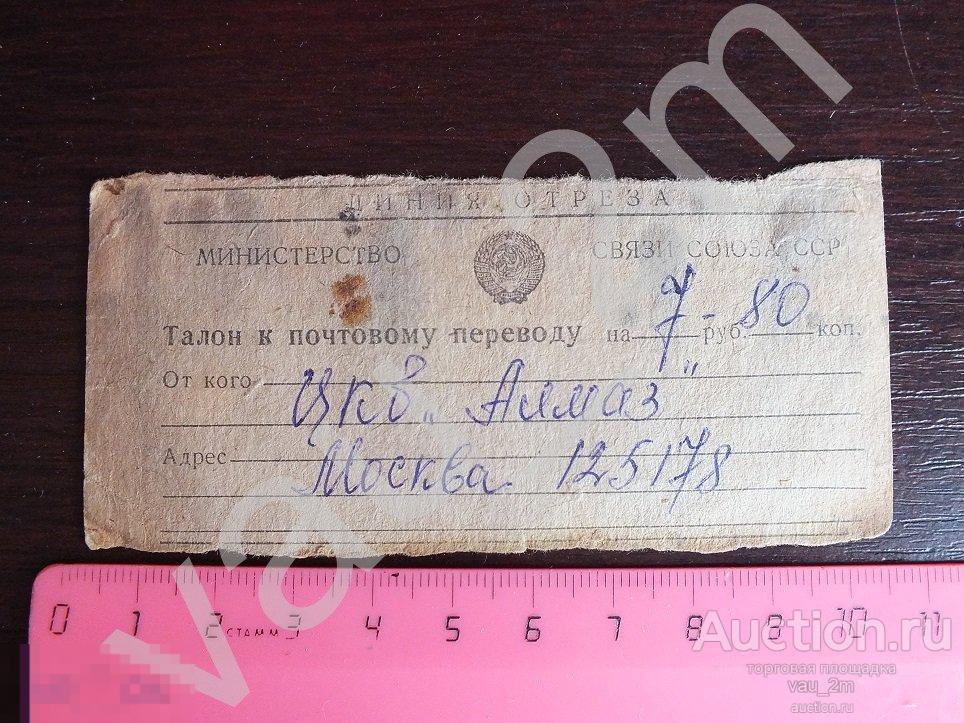 ЛИНИЯ ОТРЕЗА
МИНИСТЕРСТВО СВЯЗИ СОЮЗА ССР
Талон к почтовому переводу на 7 - руб. 80 коп.
От кого
ЦКБ „Алмаз"
Адрес
Москва 125178
0 1 2 СТАММ 3 4 5 6 7 8 9 10 11
Auction.ru
торговая площадка
vay_2m
auction.ru
vay_2m